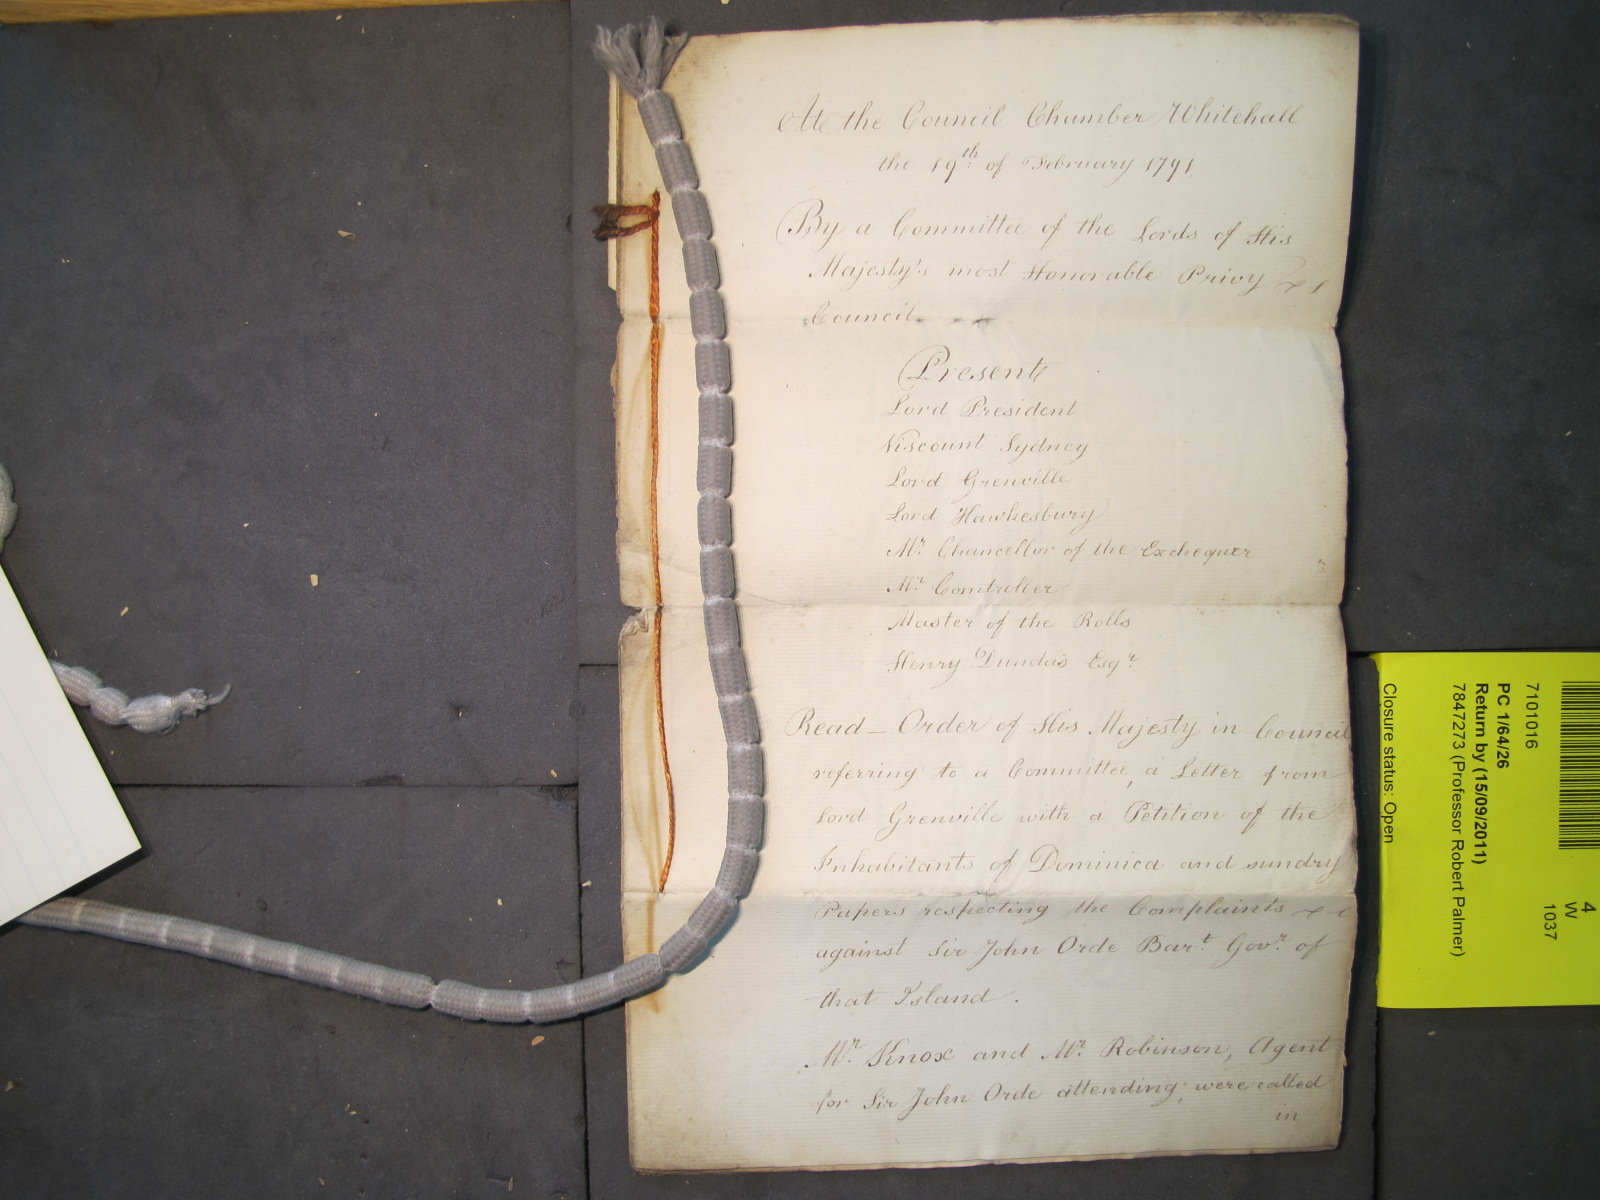 At the Council Chamber Whitehall
the 19th of February 1791
By a Committee of the Lords of His
Majesty's most Honorable Privy
Council.
Present
Lord President
Viscount Sydney
Lord Grenville
Lord Hawkesbury
Mr Chancellor of the Exchequer
Mr Comtroller
Master of the Rolls
Henry Dundas Esqr
Read – Order of His Majesty in Council
referring to a Committee, a Letter from
Lord Grenville with a Petition of the
Inhabitants of Dominica and sundry
Papers respecting the Complaints
against Sir John Orde Bart Govr of
that Island.
Mr Knox and Mr Robinson, Agent
for Sir John Orde attending, were called
in
4
W
1037
7101016
PC 1/64/26
Return by (15/09/2011)
7847273 (Professor Robert Palmer)
Closure status: Open